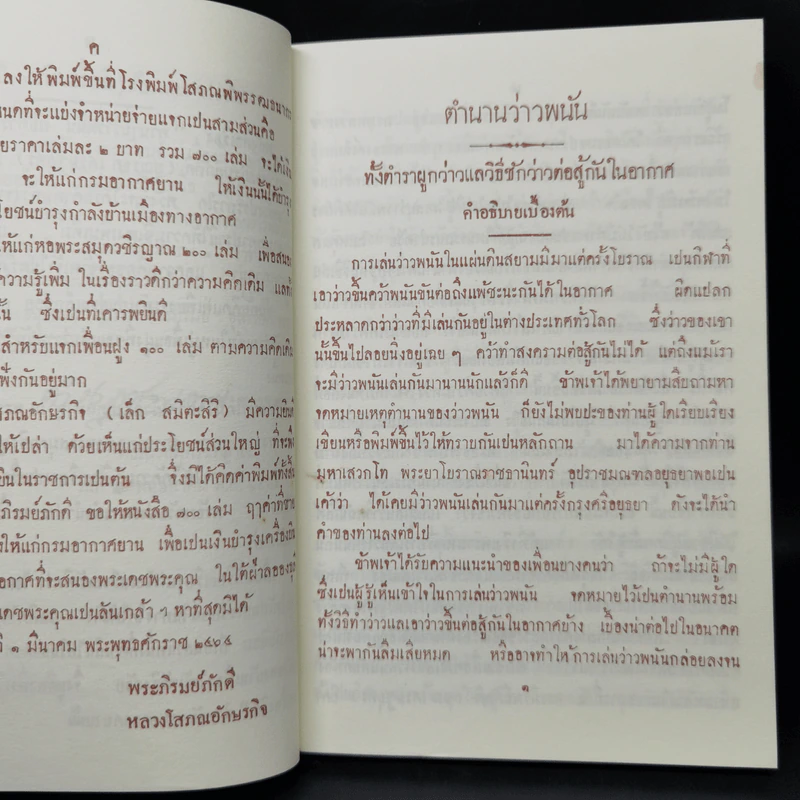 ค
ลงให้พิมพ์ขึ้นที่โรงพิมพ์โสภณพิพรรฒธนากร
ที่จะแย่งจำหน่ายจ่ายแจกเปนสามส่วนคือ
ราคาเล่มละ ๒ บาท รวม ๗๐๐ เล่ม จะได้เงิน
จะให้แก่กรมอากาศยาน ให้เงินนั้นได้บำรุง
โยชน์บำรุงกำลังบ้านเมืองทางอากาศ
ให้แก่หอพระสมุดวชิรญาณ ๒๐๐ เล่ม เพื่อสนอง
ความรู้เพิ่ม ในเรื่องราวดีกว่าความคิดเดิม แล
ซึ่งเปนที่เคารพยินดี
สำหรับแจกเพื่อนฝูง ๑๐๐ เล่ม ตามความคิดเดิม
ฟังกันอยู่มาก
ภณอักษรกิจ (เล็ก สมิตะสิริ) มีความยินดี
ให้เปล่า ด้วยเห็นแก่ประโยชน์ส่วนใหญ่ ที่จะ
ยินในราชการเปนต้น จึงมิได้คิดค่าพิมพ์ทั้งสิ้น
ภิรมย์ภักดี ขอให้หนังสือ ๗๐๐ เล่ม ฤาค่าที่ขาย
ให้แก่กรมอากาศยาน เพื่อเปนเงินบำรุงเครื่องบิน
อกาศที่จะสนองพระเดชพระคุณ ในใต้ฝ่าลอองธุลี
เดชพระคุณเปนล้นเกล้า ฯ หาที่สุดมิได้
ที่ ๑ มีนาคม พระพุทธศักราช ๒๔๖๔
พระภิรมย์ภักดี
หลวงโสภณอักษรกิจ
ตำนานว่าวพนัน
ทั้งตำราผูกว่าวแลวิธีชักว่าวต่อสู้กันในอากาศ
คำอธิบายเบื้องต้น
การเล่นว่าวพนันในแผ่นดินสยามมีมาแต่ครั้งโบราณ เปนกีฬาที่
เอาว่าวขึ้นคว้าพนันขันต่อถึงแพ้ชะนะกันได้ในอากาศ ผิดแปลก
ประหลาดกว่าว่าวที่มีเล่นกันอยู่ในต่างประเทศทั่วโลก ซึ่งว่าวของเขา
นั้นขึ้นไปลอยนิ่งอยู่เฉย ๆ คว้าทำสงครามต่อสู้กันไม่ได้ แต่ถึงแม้เรา
จะมีว่าวพนันเล่นกันมานานนักแล้วก็ดี ข้าพเจ้าได้พยายามสืบถามหา
จดหมายเหตุตำนานของว่าวพนัน ก็ยังไม่พบปะของท่านผู้ใดเรียบเรียง
เขียนหรือพิมพ์ขึ้นไว้ให้ทราบกันเปนหลักถาน มาได้ความจากท่าน
มหาเสวกโท พระยาโบราณราชธานินทร์ อุปราชมณฑลอยุธยาพอเปน
เค้าว่า ได้เคยมีว่าวพนันเล่นกันมาแต่ครั้งกรุงศรีอยุธยา ดังจะได้นำ
คำของท่านลงต่อไป
ข้าพเจ้าได้รับความแนะนำของเพื่อนบางคนว่า ถ้าจะไม่มีผู้ใด
ซึ่งเปนผู้รู้เห็นเข้าใจในการเล่นว่าวพนัน จดหมายไว้เปนตำนานพร้อม
ทั้งวิธีทำว่าวแลเอาว่าวขึ้นต่อสู้กันในอากาศบ้าง เบื้องน่าต่อไปในอนาคต
น่าจะพากันลืมเสียหมด หรืออาจทำให้การเล่นว่าวพนันกล่อยลงจน
๑